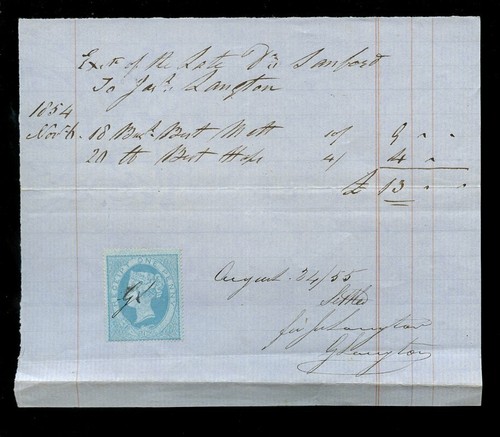 Exrs of the Late Dr Sanford
To Jas. Langton
1854
Novr 6. 18 Bush Best Malt 10/ 9 " "
20 lb Best Hops 4/ 4 "
£ 13 " "
RECEIPT ONE PENNY
GL
August 24/55
Settled
for Jas Langton
G Langton